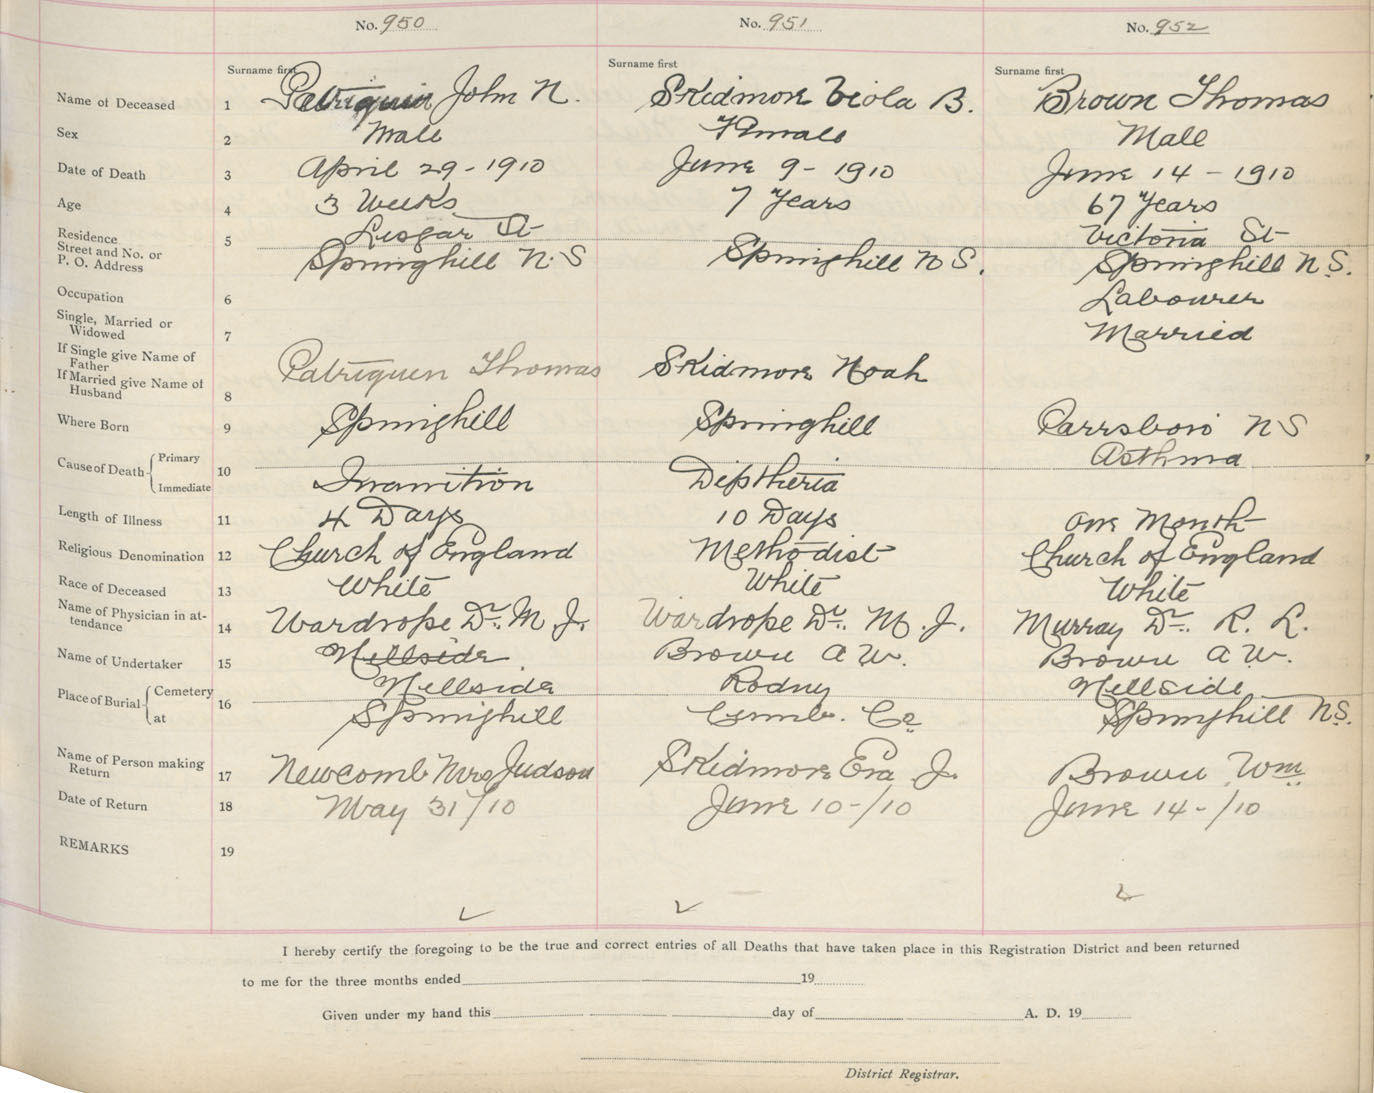 No. 950 No. 951 No. 952
Surname first Surname first Surname first
Name of Deceased 1 Patriquin John N. Skidmore Viola B. Brown Thomas
Sex 2 Male Female Male
Date of Death 3 April 29 - 1910 June 9 - 1910 June 14 - 1910
Age 4 3 Weeks 7 Years 67 Years
Residence Street and No. or P. O. Address 5 Lisgar St Victoria St
Springhill N. S Springhill N S. Springhill N. S.
Occupation 6 Labourer
Single, Married or Widowed 7 Married
If Single give Name of Father
If Married give Name of Husband 8 Patriquen Thomas Skidmore Noah
Where Born 9 Springhill Springhill Parrsboro N S
Cause of Death Primary 10 Asthma
Immediate Inanition Diptheria
Length of Illness 11 4 Days 10 Days One Month
Religious Denomination 12 Church of England Methodist Church of England
Race of Deceased 13 White White White
Name of Physician in attendance 14 Wardrope Dr. M. J. Wardrope Dr. M. J. Murray Dr. R. L.
Name of Undertaker 15 Hillside Brown A W. Brown A. W.
Place of Burial Cemetery 16 Hillside Rodny Hillside
at Springhill Cumb. Co Springhill N.S.
Name of Person making Return 17 Newcomb Mrs Judson Skidmore Eva J. Brown Wm
Date of Return 18 May 31/10 June 10-/10 June 14-/10
REMARKS 19
I hereby certify the foregoing to be the true and correct entries of all Deaths that have taken place in this Registration District and been returned
to me for the three months ended 19
Given under my hand this day of A. D. 19
District Registrar.